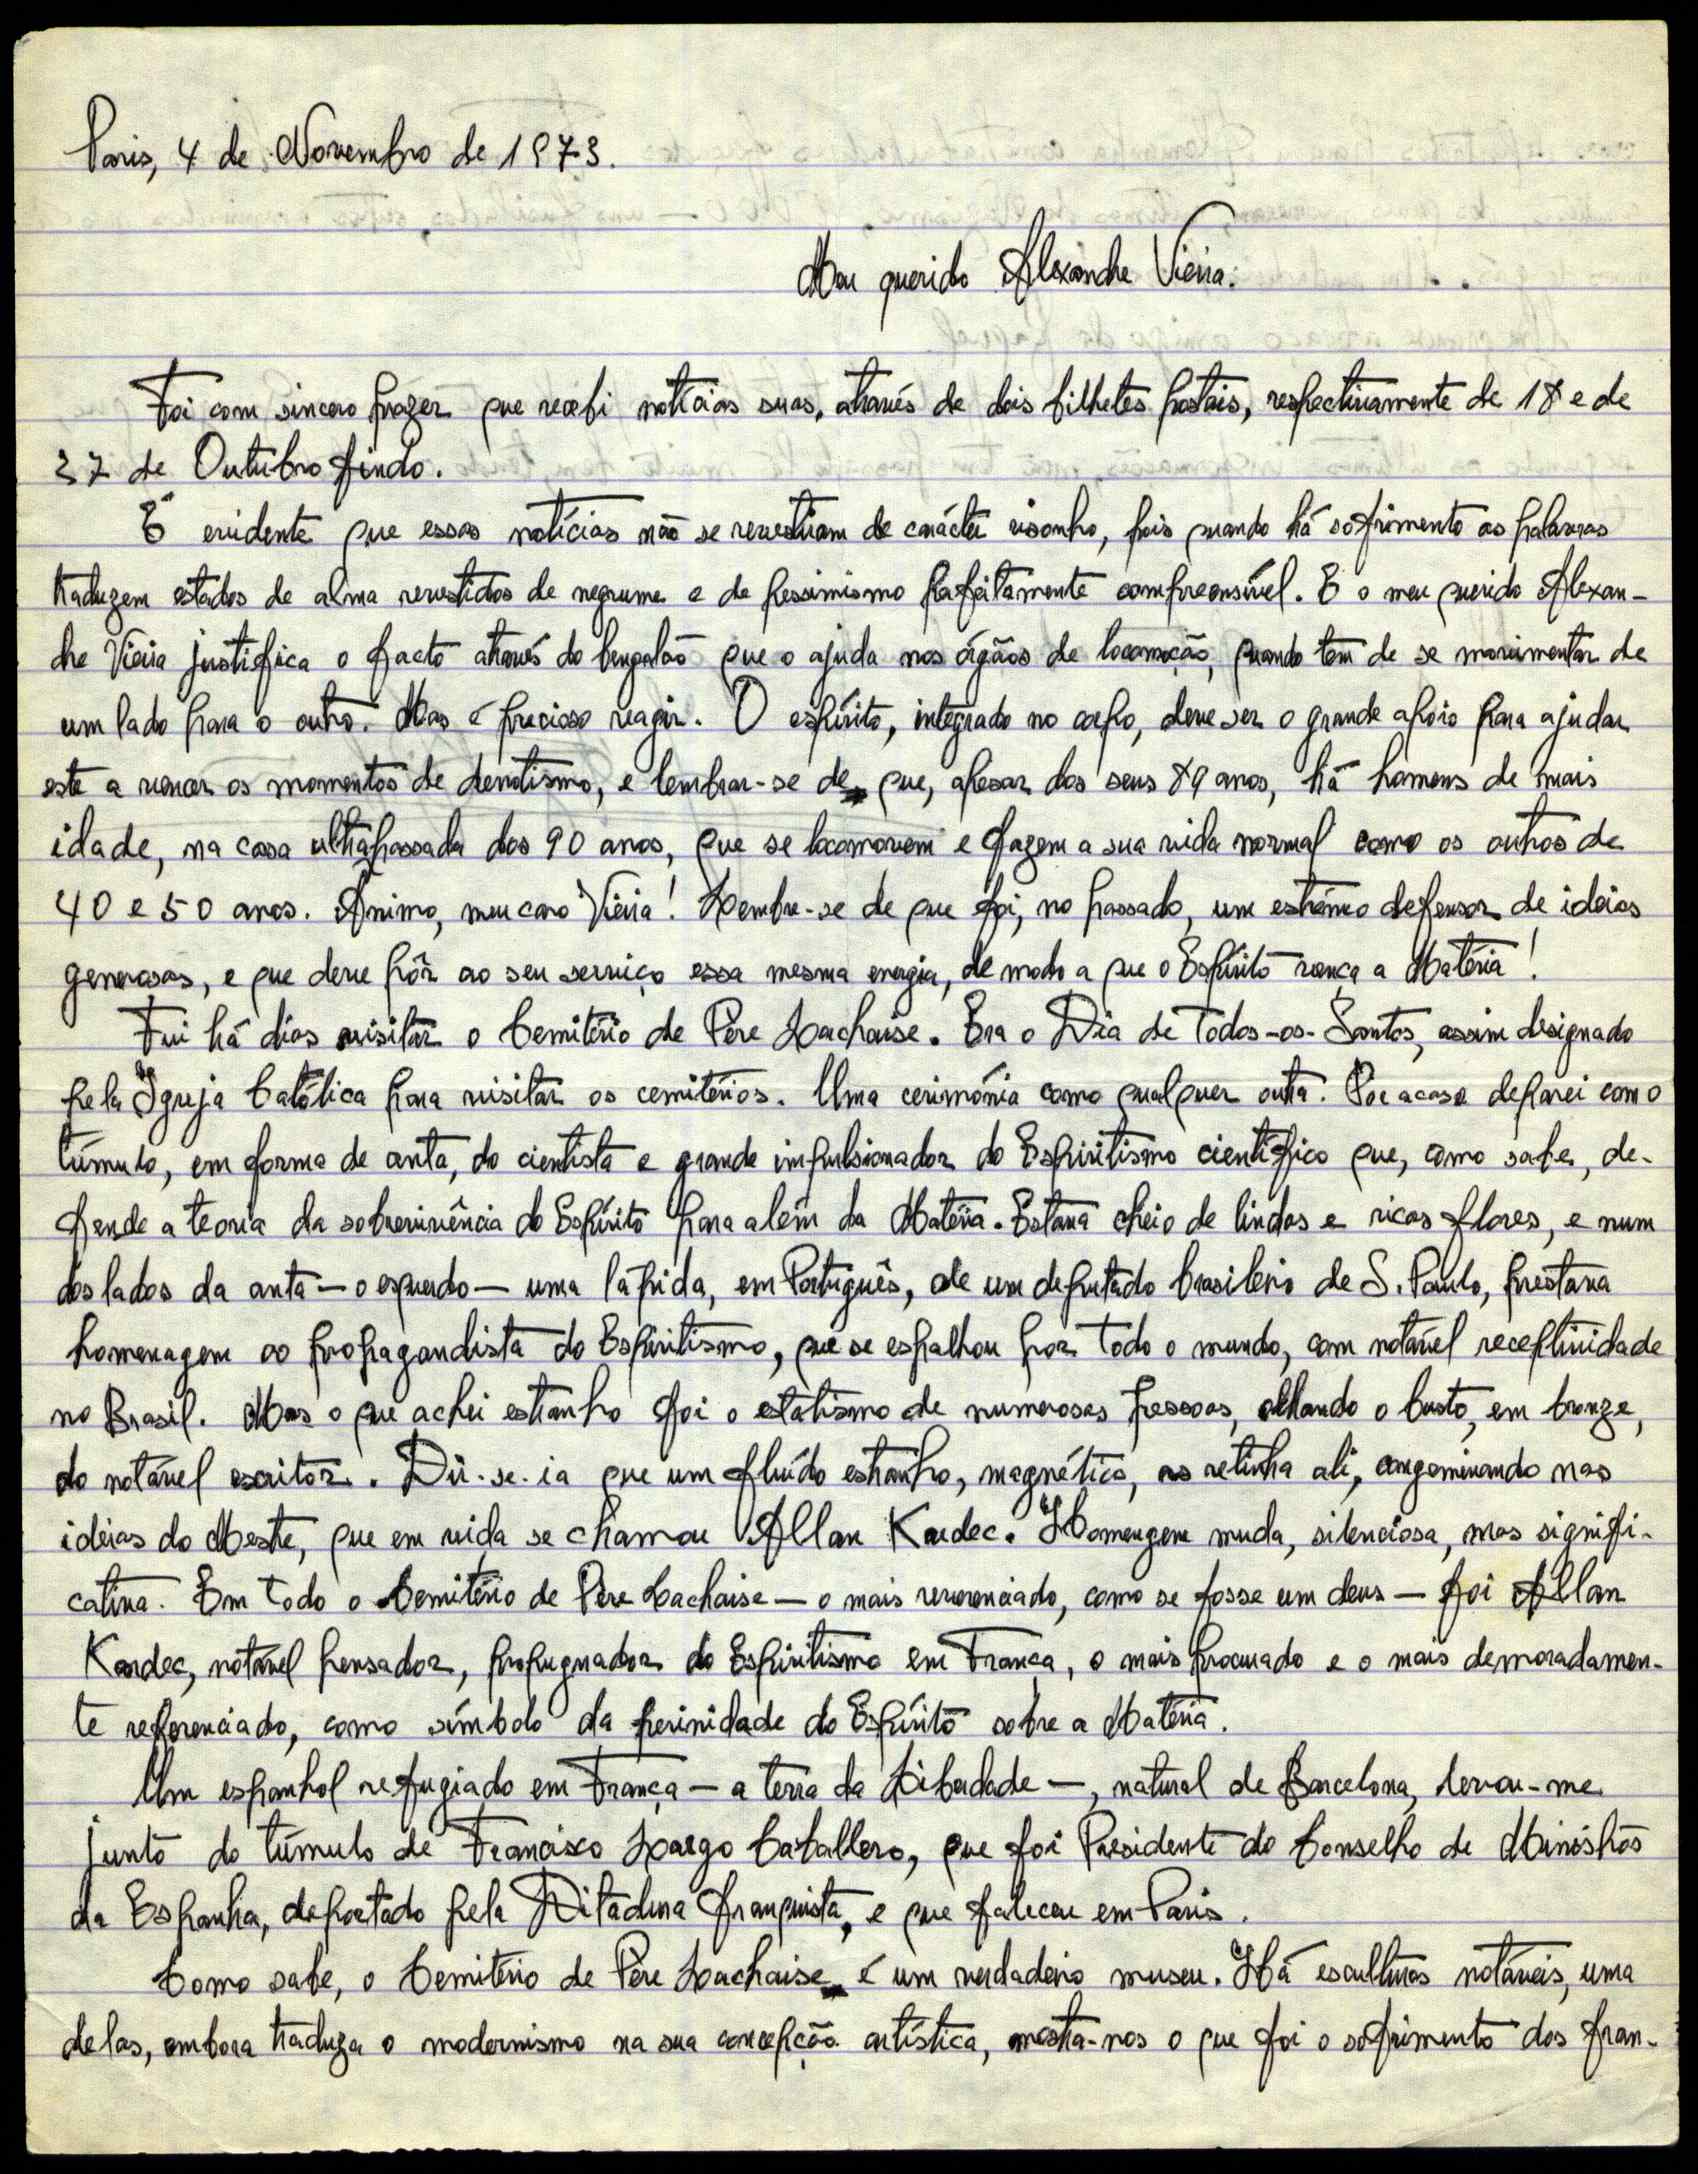 Paris, 4 de Novembro de 1973.
Meu querido Alexandre Vieira:
Foi com sincero prazer que recebi notícias suas, através de dois bilhetes postais, respectivamente de 18 e de
27 de Outubro findo.
É evidente que essas notícias não se revestiam de carácter risonho, pois quando há sofrimento as palavras
traduzem estados de alma revestidos de negrume e de pessimismo perfeitamente compreensível. E o meu querido Alexan-
dre Vieira justifica o facto através do bengalão que o ajuda nos órgãos de locomoção, quando tem de se movimentar de
um lado para o outro. Mas é precioso reagir. O espírito, integrado no corpo, deve ser o grande apoio para ajudar
este a vencer os momentos de derrotismo, e lembrar-se de que, apesar dos seus 89 anos, há homens de mais
idade, na casa ultrapassada dos 90 anos, que se locomovem e fazem a sua vida normal como os outros de
40 e 50 anos. Ânimo, meu caro Vieira! Lembre-se de que foi, no passado, um estrénuo defensor de ideias
generosas, e que deve pôr ao seu serviço essa mesma energia, de modo a que o Espírito vença a Matéria!
Fui há dias visitar o Cemitério de Père Lachaise. Era o Dia de Todos-os-Santos, assim designado
pela Igreja Católica para visitar os cemitérios. Uma cerimónia como qualquer outra. Por acaso deparei com o
túmulo, em forma de anta, do cientista e grande impulsionador do Espiritismo científico que, como sabe, de-
fende a teoria da sobrevivência do Espírito para além da Matéria. Estava cheio de lindas e ricas flores, e num
dos lados da anta — o esquerdo — uma lápida, em Português, de um deputado brasileiro de S. Paulo, prestava
homenagem ao propagandista do Espiritismo, que se espalhou por todo o mundo, com notável receptividade
no Brasil. Mas o que achei estranho foi o estatismo de numerosas pessoas, olhando o busto, em bronze,
do notável escritor. Dir-se-ia que um fluído estranho, magnético, as retinha ali, congeminando nas
ideias do Mestre, que em vida se chamou Allan Kardec. Homenagem muda, silenciosa, mas signifi-
cativa. Em todo o Cemitério de Père Lachaise — o mais reverenciado, como se fosse um deus — foi Allan
Kardec, notável pensador, propugnador do Espiritismo em França, o mais procurado e o mais demoradamen-
te referenciado, como símbolo da perinidade do Espírito sobre a Matéria.
Um espanhol refugiado em França — a terra da Liberdade —, natural de Barcelona, levou-me
junto do túmulo de Francisco Largo Caballero, que foi Presidente do Conselho de Ministros
da Espanha, deportado pela Ditadura franquista, e que faleceu em Paris.
Como sabe, o Cemitério de Père Lachaise é um verdadeiro museu. Há esculturas notáveis, uma
delas, embora traduza o modernismo na sua concepção artística, mostra-nos o que foi o sofrimento dos fran-